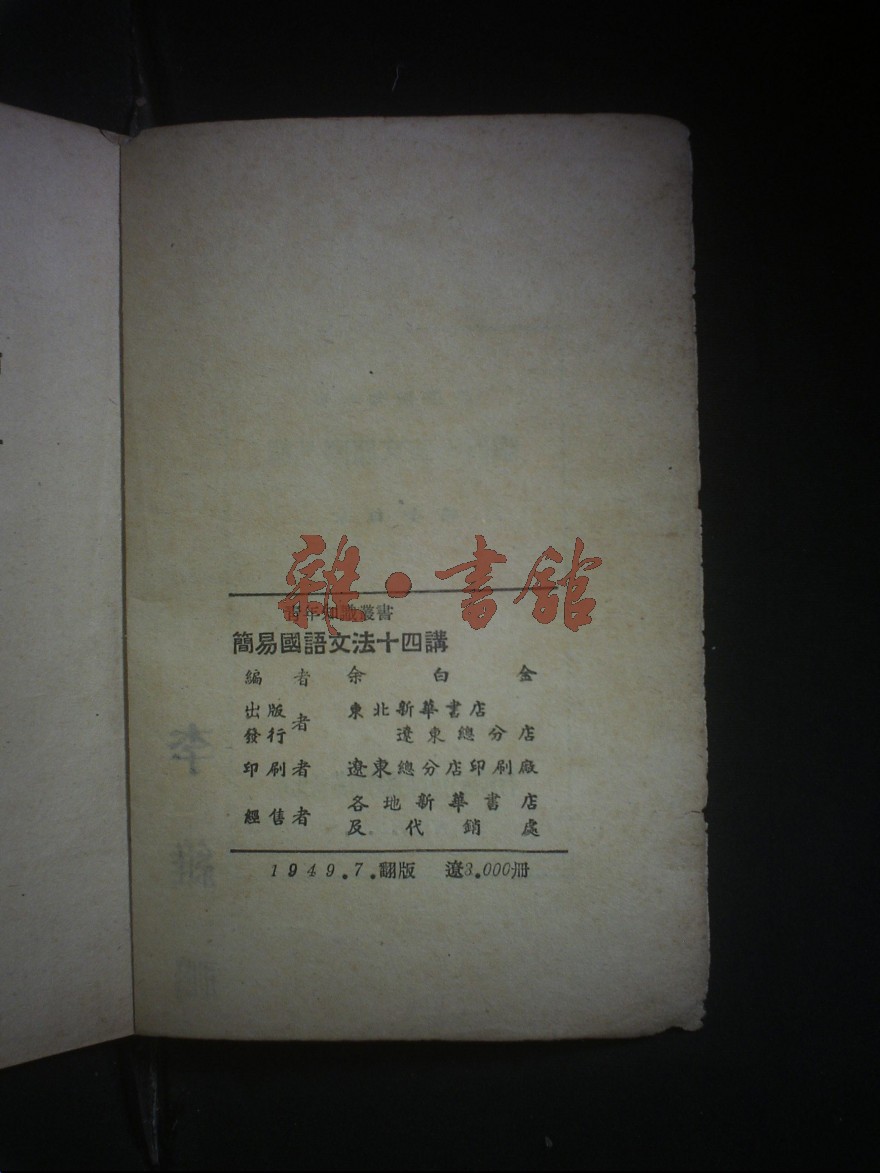 雜·書館
青年知識叢書
簡易國語文法十四講
編者 余白金
出版發行者 東北新華書店
遼東總分店
印刷者 遼東總分店印刷廠
經售者 各地新華書店
及代銷處
1949.7.翻版 遼3.000册